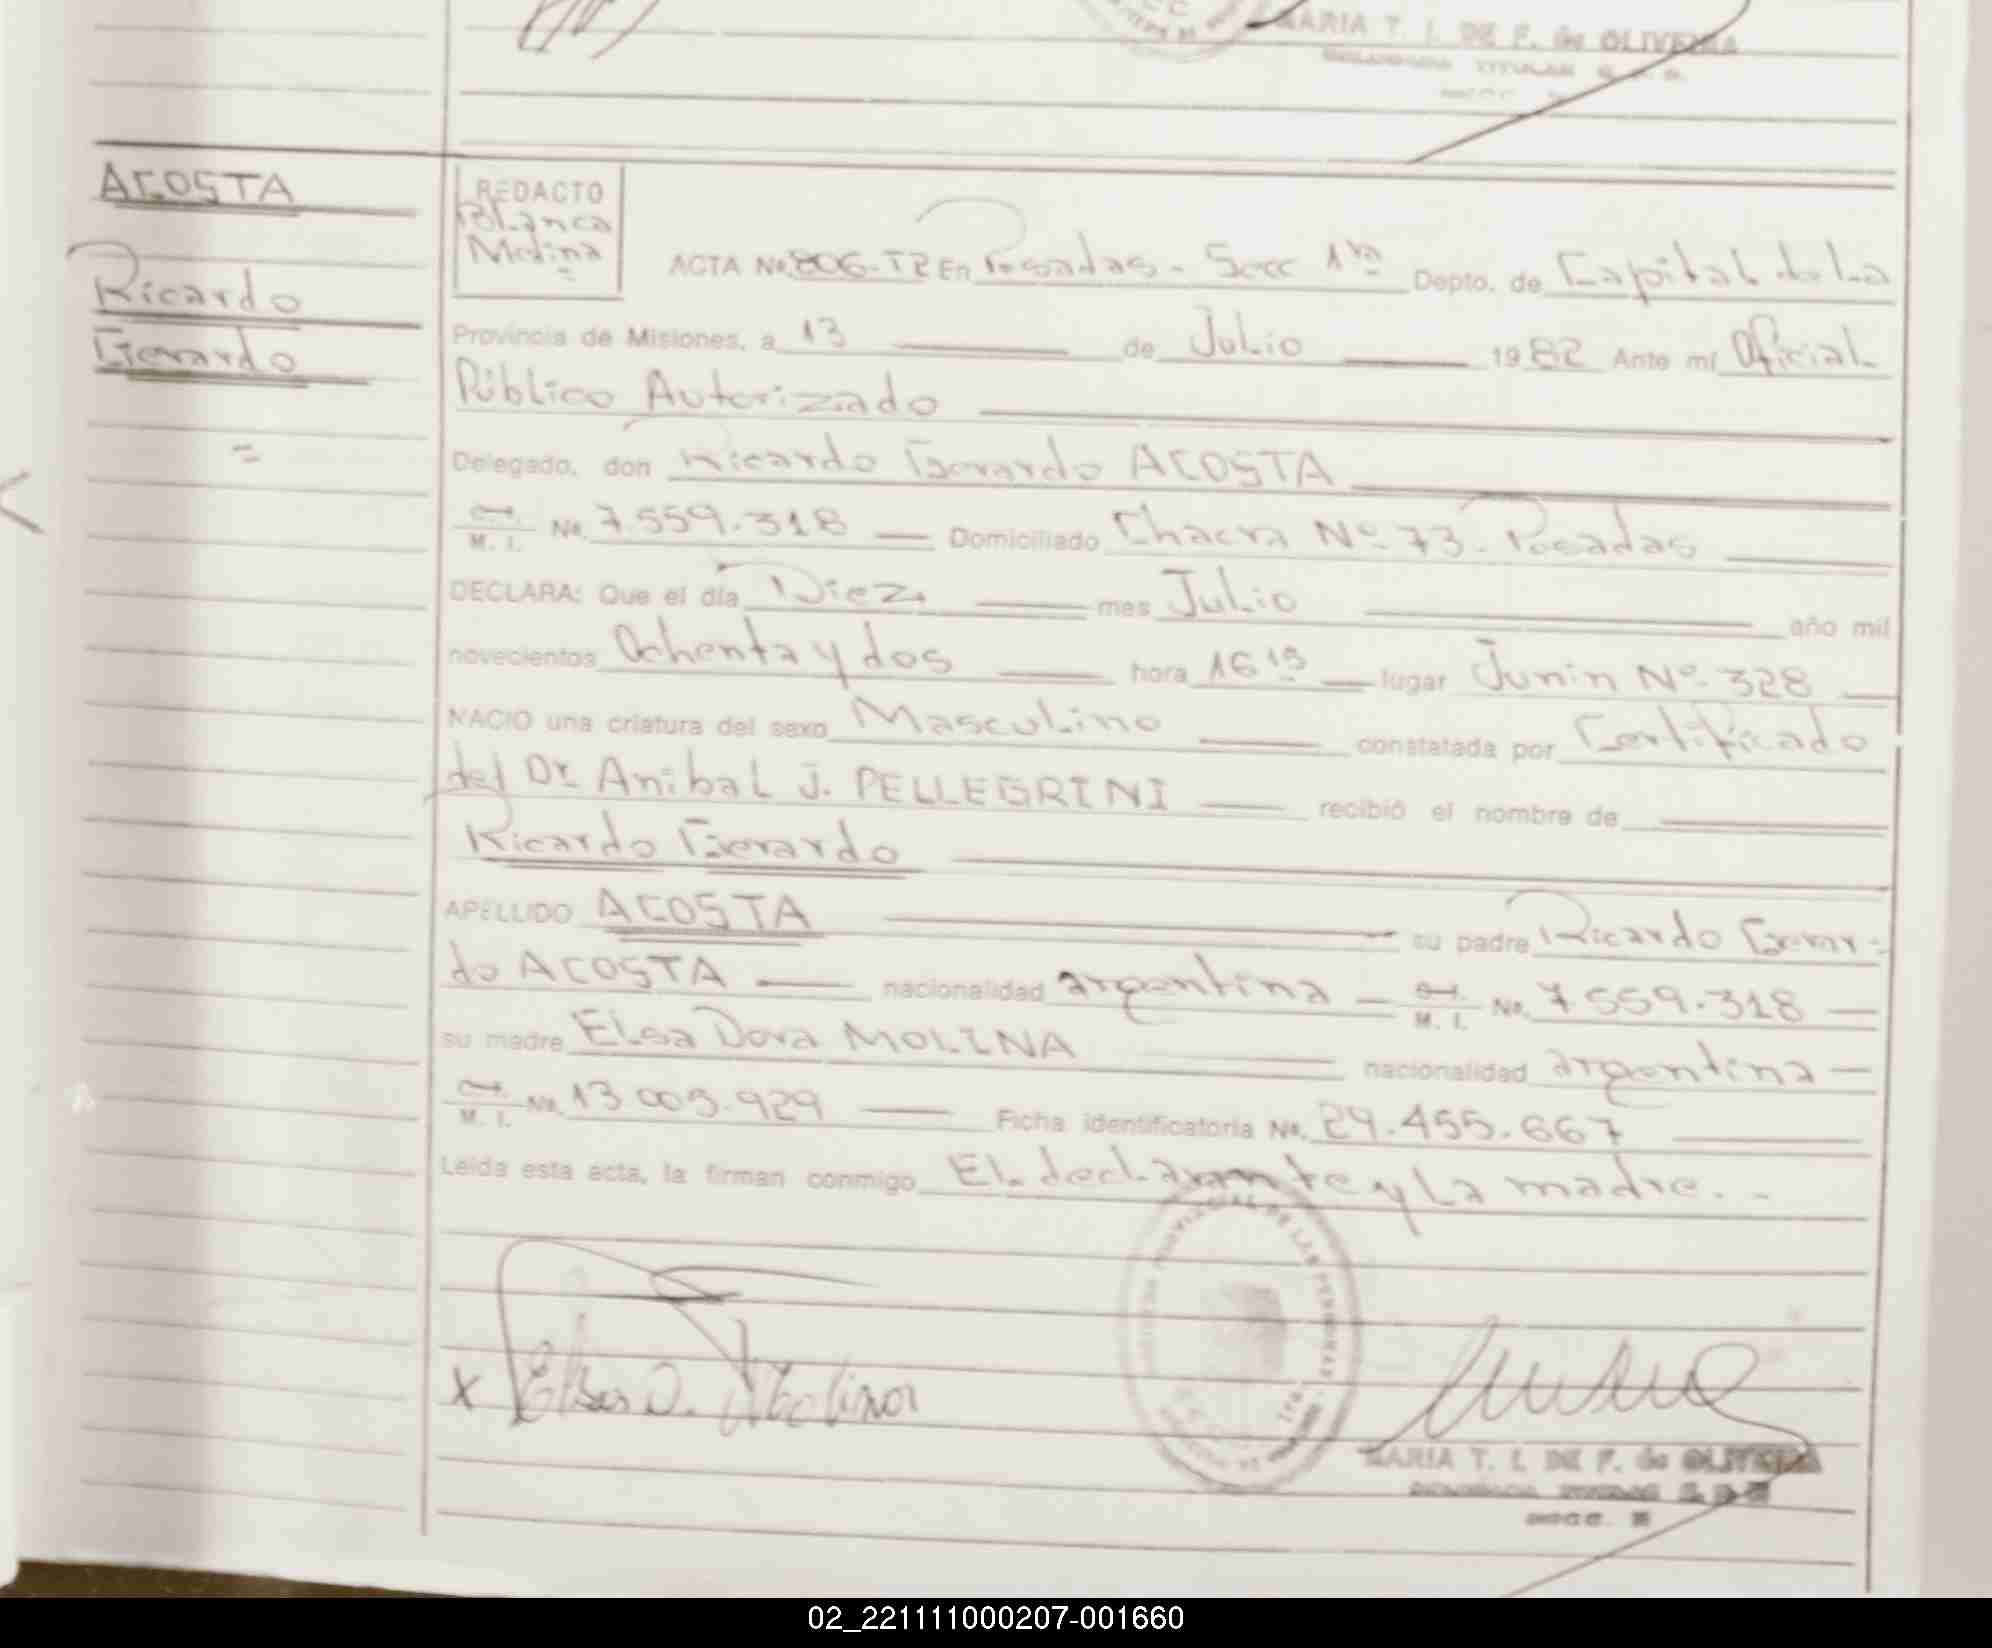 MARIA T. I. DE F. de OLIVEIRA
ACOSTA
Ricardo
Gerardo
REDACTO
Blanca
Molina
ACTA No. 806-T2 En Posadas - Secc 1ra Depto. de Capital de la
Provincia de Misiones, a 13 de Julio 1982 Ante mí Oficial
Público Autorizado
Delegado, don Ricardo Gerardo ACOSTA
M. I. No. 7.559.318 Domiciliado Chacra Nº 73 - Posadas
DECLARA: Que el día Diez mes Julio año mil
novecientos Ochenta y dos hora 16 15 lugar Junin Nº 328
NACIO una criatura del sexo Masculino constatada por Certificado
del Dr Anibal J. PELLEGRINI recibió el nombre de
Ricardo Gerardo
APELLIDO ACOSTA su padre Ricardo Gerar-
do ACOSTA nacionalidad argentina M. I. No. 7 559.318
su madre Elsa Dora MOLINA nacionalidad argentina
M. I. No. 13 005.929 Ficha identificatoria No. 29.455.667
Leída esta acta, la firman conmigo El declarante y la madre. -
PROVINCIAL DE LAS PERSONAS
x Elsa D. Molina
MARIA T. I. DE F. de OLIVEIRA
02_221111000207-001660